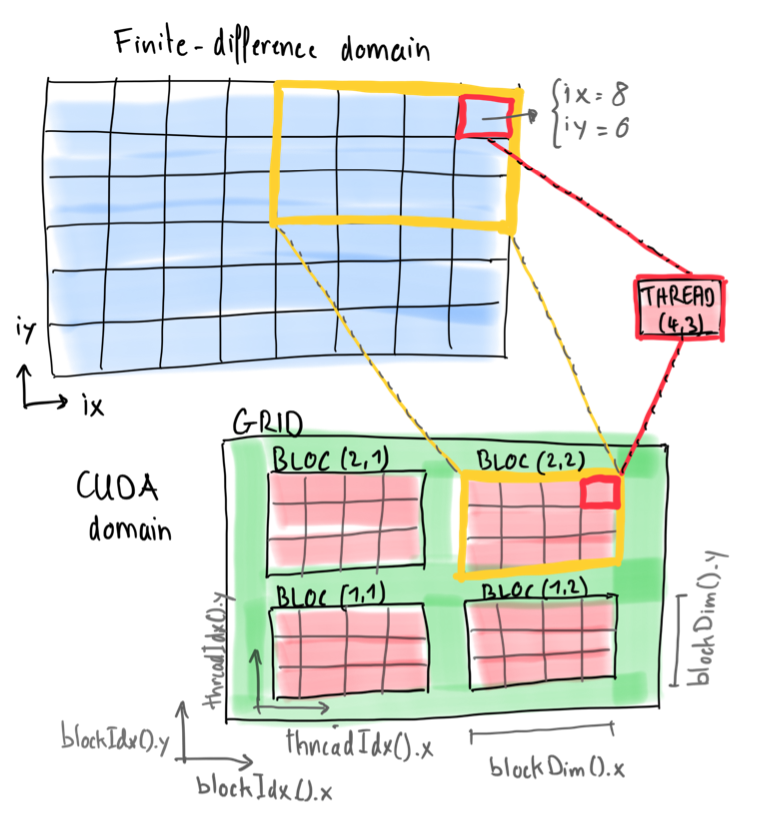 Finite-difference domain
{ix = 8
iy = 6
THREAD
(4,3)
iy
ix
GRID
CUDA
domain
BLOC (2,1)
BLOC (2,2)
BLOC (1,1)
BLOC (1,2)
threadIdx().y
blockDim().y
blockIdx().y
threadIdx().x
blockIdx().x
blockDim().x